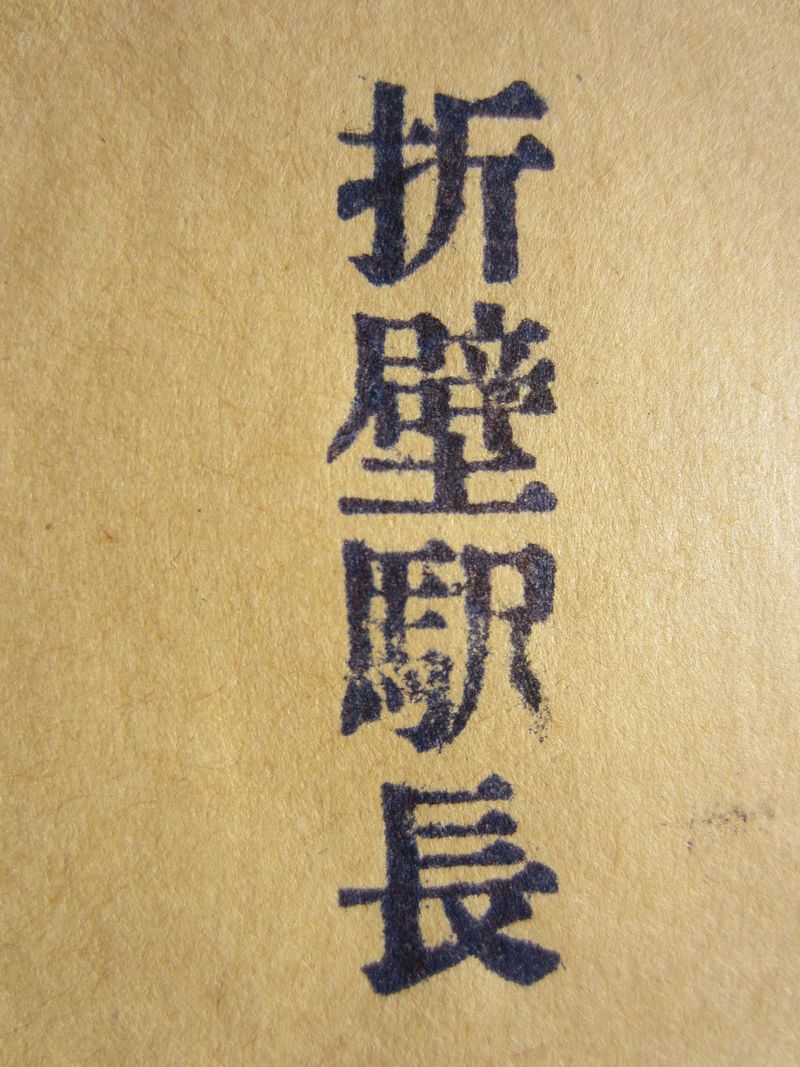 折壁駅長